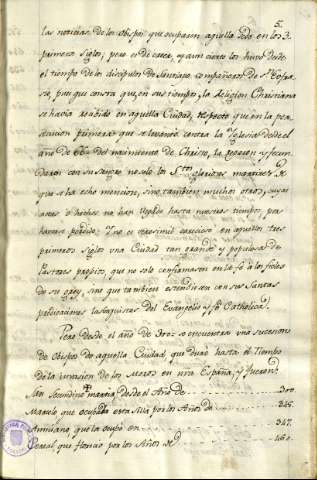 5.
las noticias de los obispos que ocuparon aquella Sede en los 3.
primeros siglos; pero es de creer, y aun cierto los hubo desde
el tiempo de los discipulos de Santiago compañeros de Sn. Eufra-
sio, pues que consta que, en sus tiempos, la Religion Christiana
se havia recibido en aquella Ciudad, respecto que en la per-
secucion primera que se levantó contra la Yglesia desde el
año de 66 del nacimiento de Christo, la regaron y fecun-
daron con su sangre no solo los Stos. gloriosos martires de
que se ha echo mencion, sino tambien muchos otros, cuyas
actas o hechos no han llegado hasta nuestros tiempos, por
haverse perdido. Y no es veresimil careciese en aquellos tres
primeros siglos una Ciudad tan grande y populosa de
Pastores propios, que no solo confirmasen en la fé a los fieles
de su grey, sino que tambien estendiesen con sus Santas
predicaciones las maximas del Evangelio y fé Catholica.
Pero desde el año de 300 se encuentra una succesion
de Obispos de aquella Ciudad, que duró hasta el Tiempo
de la invasion de los Moros en nra. España, y fueron
San Secundino martir, desde el Año de 300.
que ocupaba esta Silla por los Años de 325.
que la ocupó en 347.
que floreció por los Años de